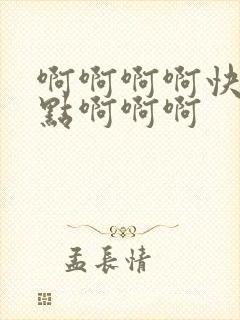 啊啊啊啊快
點啊啊啊
孟長情